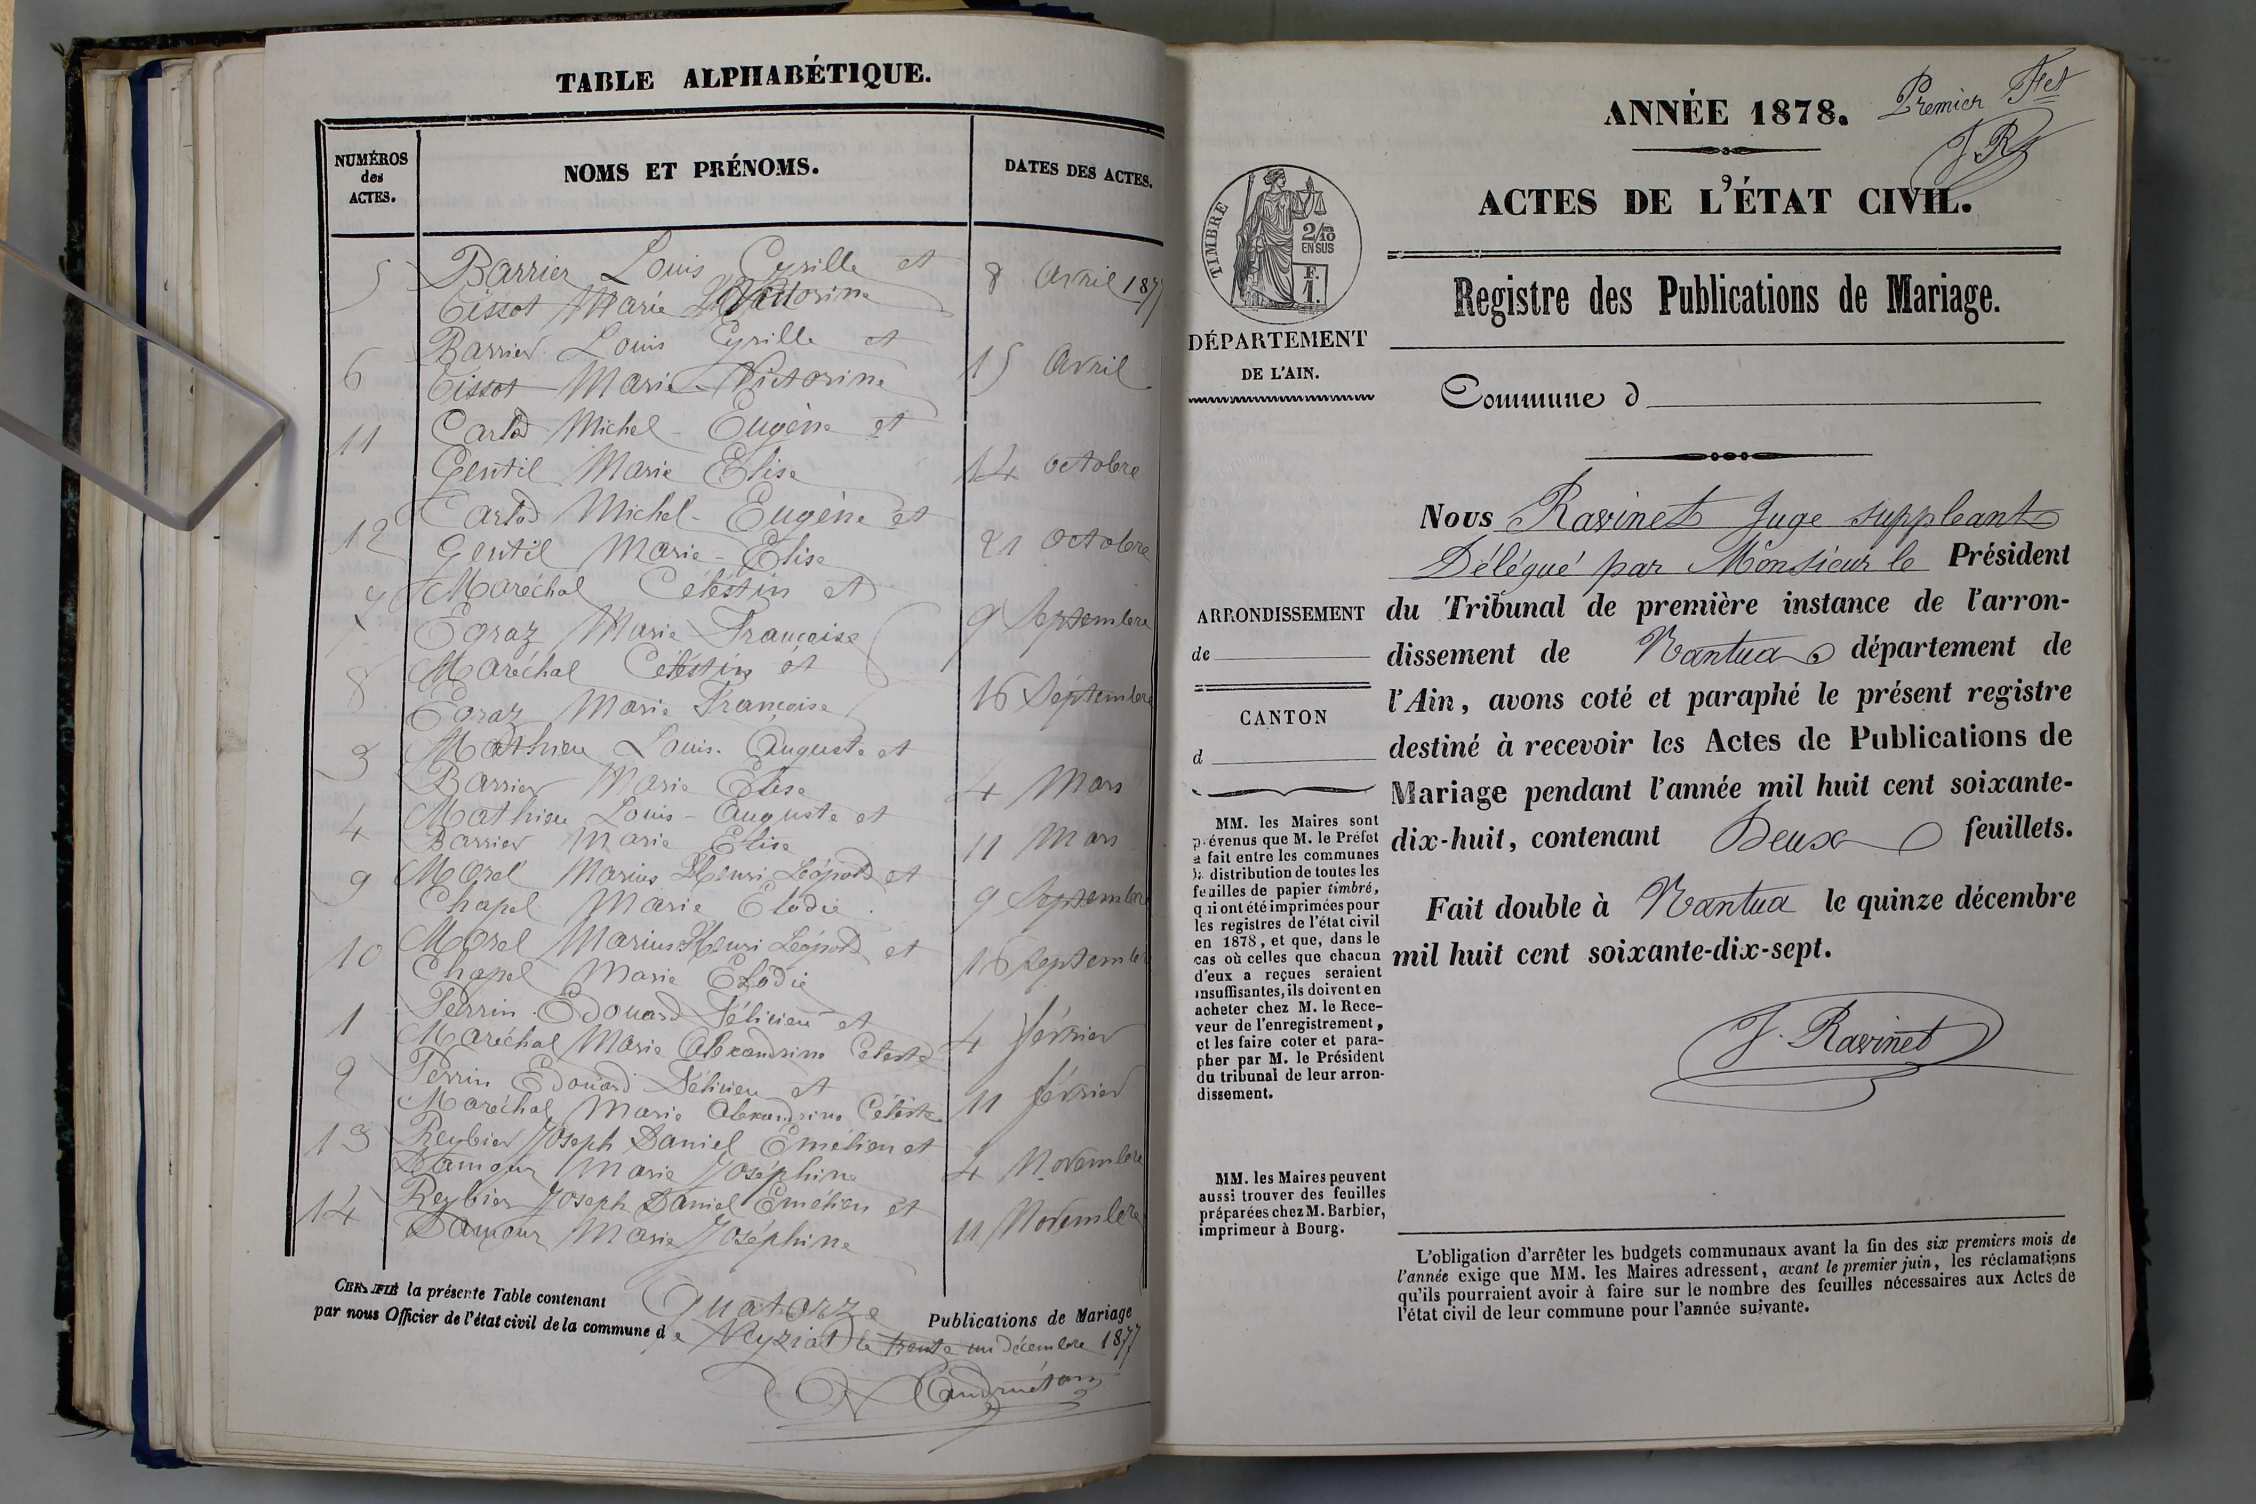 TABLE ALPHABÉTIQUE.
NUMÉROS
des
ACTES.
NOMS ET PRÉNOMS.
DATES DES ACTES.
5 Barrier Louis Cyrille et 8 avril 1877
Tissot Marie Victorine
Barrier Louis Cyrille et
6 Tissot Marie Victorine 15 avril
11 Carlod Michel Eugène et
Gentil Marie Elise 14 octobre
Carlod Michel Eugène et
12 Gentil Marie-Elise 21 octobre
7 Maréchal Céléstin et
Egraz Marie Françoise 9 Septembre
8 Maréchal Céléstin et
Egraz Marie Françoise 16 Septembre
3 Mathieu Louis Auguste et
Barrier Marie Elise 4 Mars
4 Mathieu Louis-Auguste et
Barrier Marie Elise 11 Mars
9 Morel Marius Henri Léopold et
Chapel Marie Elodie 9 Septembre
10 Morel Marius Henri Léopold et
Chapel Marie Elodie 16 Septembre
1 Perrin Edouard Félicien et
Maréchal Marie Alexandrine Céleste 4 février
2 Perrin Edouard Félicien et
Maréchal Marie Alexandrine Céleste 11 février
13 Reybier Joseph Daniel Emélien et
Damour Marie Joséphine 4 Novembre
14 Reybier Joseph Daniel Emélien et
Damour Marie Joséphine 11 Novembre
CERTIFIÉ la présente Table contenant Quatorze Publications de Mariage
par nous Officier de l'état civil de la commune de Veyziat le trente un décembre 1877
ANNÉE 1878.
Premier Fet
J R
ACTES DE L'ÉTAT CIVIL.
Registre des Publications de Mariage.
TIMBRE
2/10
EN SUS
F.
1.
DÉPARTEMENT
DE L'AIN.
Commune d
Nous Ravinet Juge suppleant
Délégué par Monsieur le Président
du Tribunal de première instance de l'arron-
dissement de Nantua département de
l'Ain, avons coté et paraphé le présent registre
destiné à recevoir les Actes de Publications de
Mariage pendant l'année mil huit cent soixante-
dix-huit, contenant Deux feuillets.
Fait double à Nantua le quinze décembre
mil huit cent soixante-dix-sept.
J. Ravinet
ARRONDISSEMENT
de
CANTON
d
MM. les Maires sont
prévenus que M. le Préfet
a fait entre les communes
la distribution de toutes les
feuilles de papier timbré,
qui ont été imprimées pour
les registres de l'état civil
en 1878, et que, dans le
cas où celles que chacun
d'eux a reçues seraient
insuffisantes, ils doivent en
acheter chez M. le Rece-
veur de l'enregistrement,
et les faire coter et para-
pher par M. le Président
du tribunal de leur arron-
dissement.
MM. les Maires peuvent
aussi trouver des feuilles
préparées chez M. Barbier,
imprimeur à Bourg.
L'obligation d'arrêter les budgets communaux avant la fin des six premiers mois de
l'année exige que MM. les Maires adressent, avant le premier juin, les réclamations
qu'ils pourraient avoir à faire sur le nombre des feuilles nécessaires aux Actes de
l'état civil de leur commune pour l'année suivante.